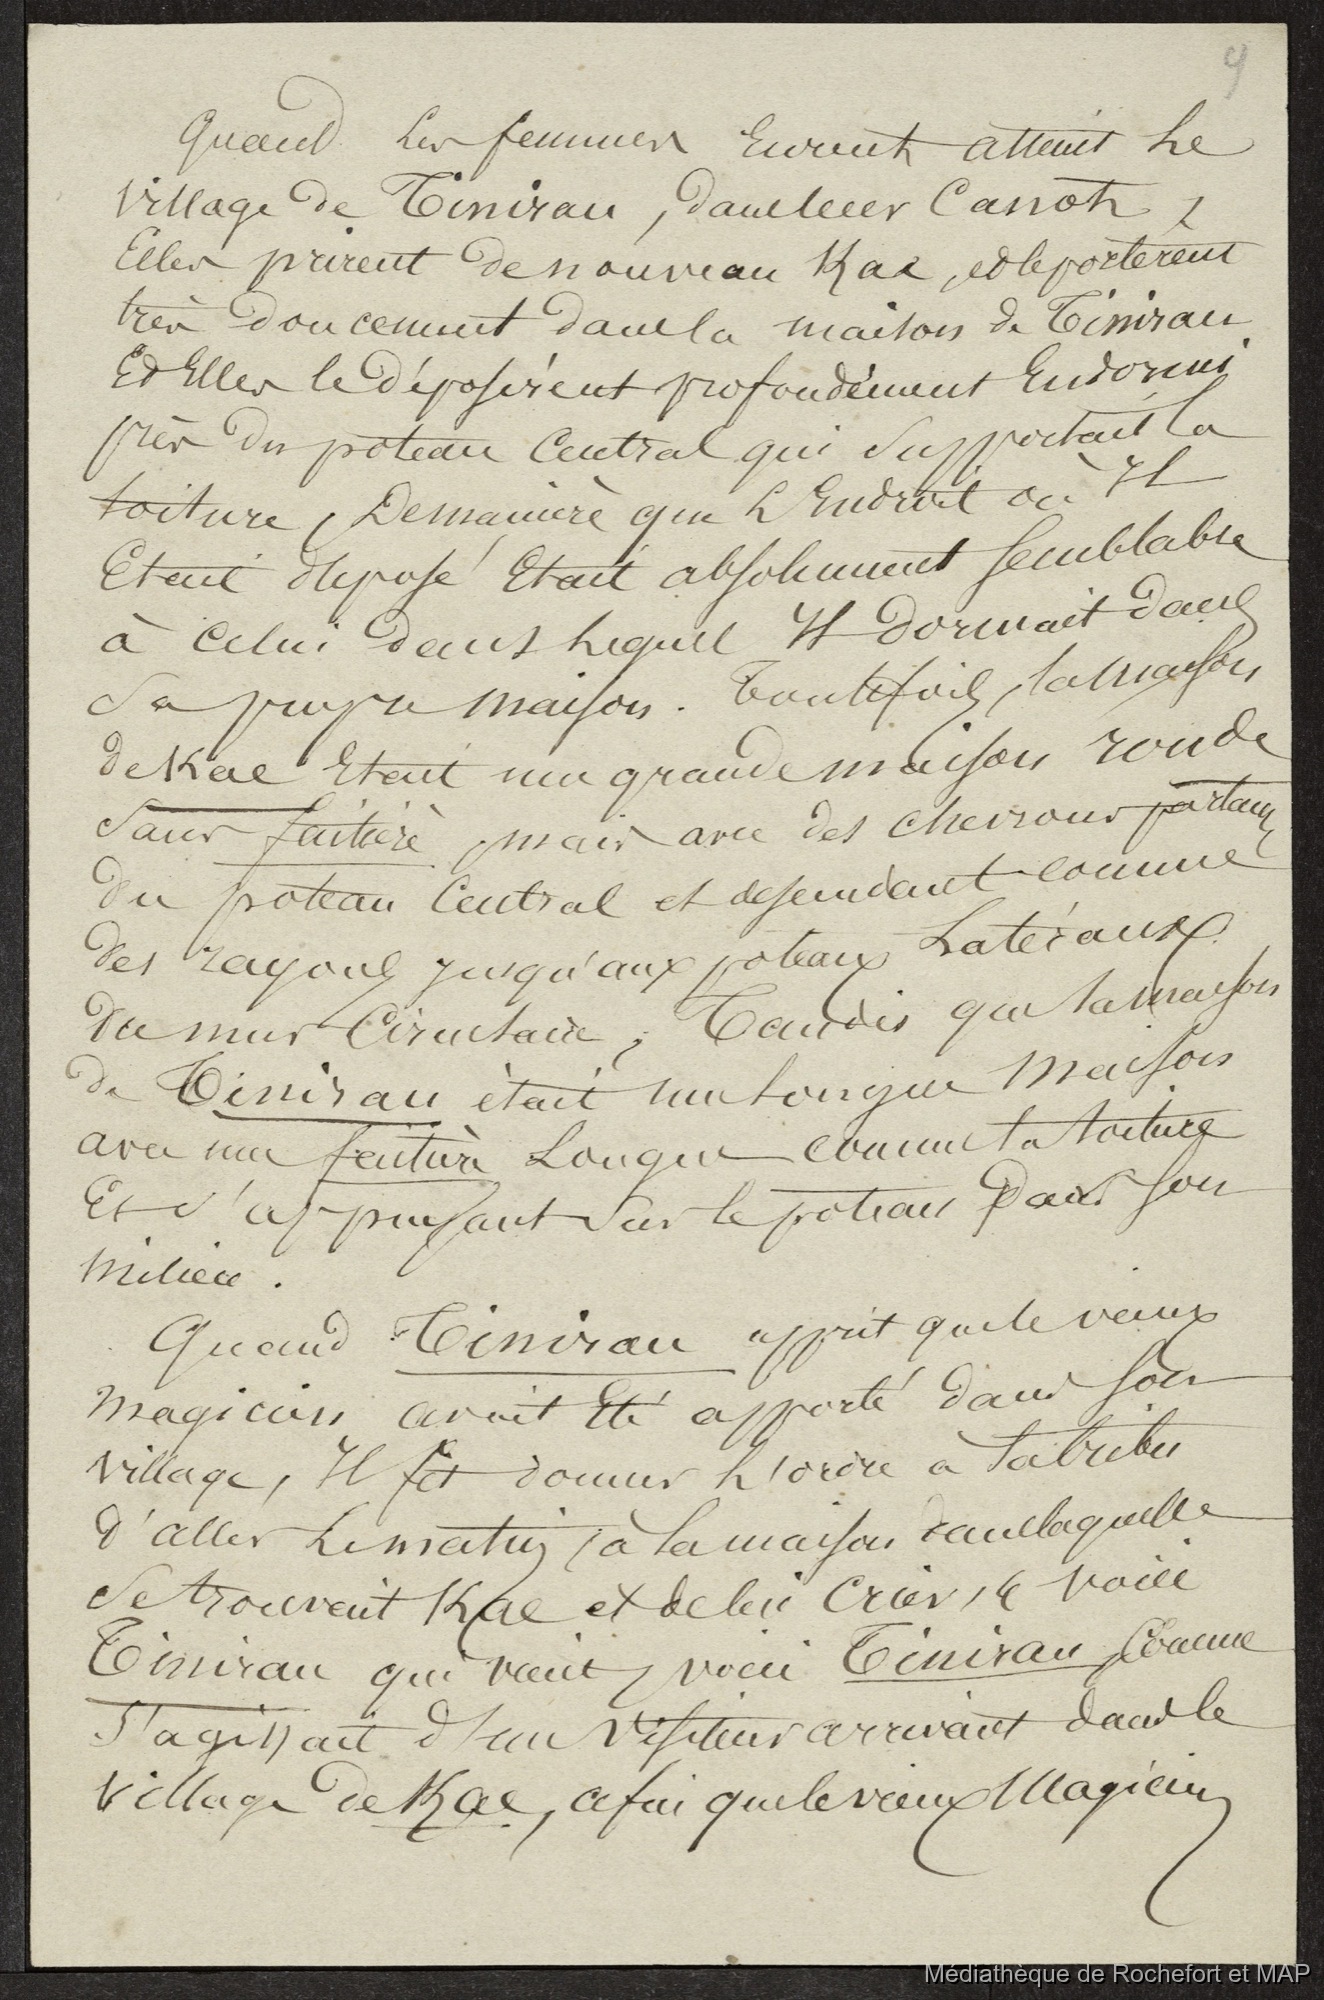 9
Quand les femmes Eurent atteint Le
Village de Tinirau, dans leur Canoth,
Elles prirent de nouveau Kae, et le portèrent
très doucement dans la maison de Tinirau
Et Elles le déposèrent profondément Endormi
près du poteau Central qui Supportait la
toiture, De manière que L'Endroit où Il
Etait déposé Etait absolument semblable
à Celui dans Lequel Il Dormait dans
Sa propre maison. Toutefois, la maison
de Kae Etait une grande maison ronde
Sans faitière, mais avec des chevrons partant
du poteau Central et descendant comme
des rayons jusqu'aux poteaux Latéraux
du mur Circulaire; Tandis que la maison
de Tinirau était une longue Maison
avec une faitière Longue comme la toiture
Et s'appuyant sur le poteau Dans son
milieu.
Quand Tinirau apprit que le vieux
magicien avait Eté apporté dans son
village, Il fit donner l'ordre à la tribu
d'aller Le matin, à la maison dans laquelle
Se trouvait Kae et de lui Crier, « voici
Tinirau qui vient, voici Tinirau, Comme
S'agissait d'un Visiteur arrivant dans le
village de Kae, afin que le vieux Magicien
Médiathèque de Rochefort et MAP